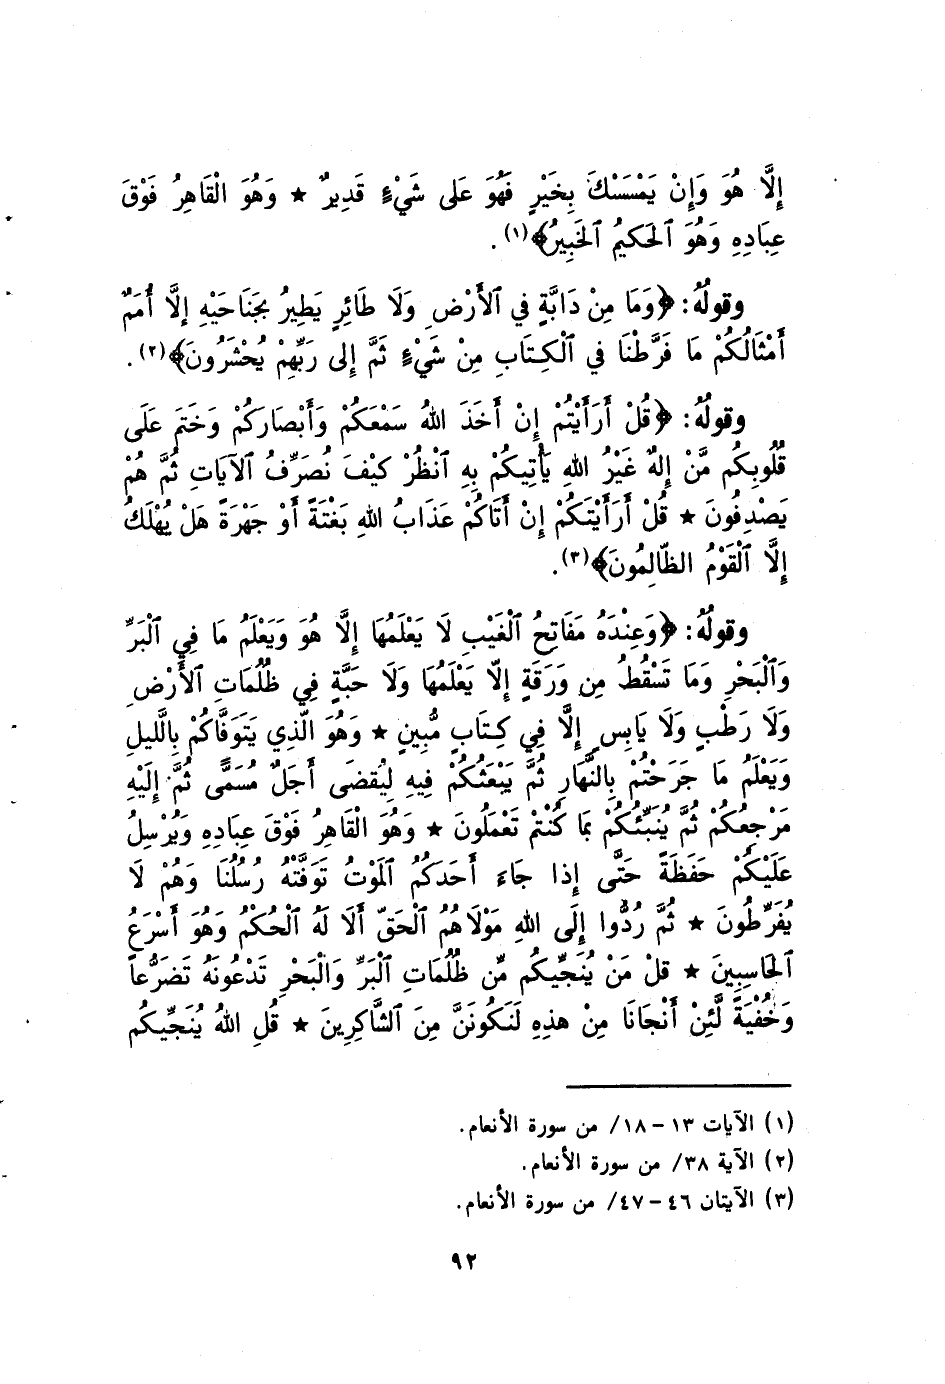 إِلَّا هُوَ وَإِنْ يَمْسَسْكَ بِخَيْرٍ فَهُوَ عَلى شَيْءٍ قَدِيرٌ ★ وَهُوَ الْقَاهِرُ فَوْقَ
عِبَادِهِ وَهُوَ ٱلحَكيمُ ٱلخَبِيرُ﴾(١) .
وقولُهُ: ﴿وَمَا مِنْ دَابَّةٍ في ٱلأَرْضِ وَلَا طَائِرٍ يَطِيرُ بجَنَاحَيْهِ إلَّا أُمَمٌ
أَمْثَالُكُمْ مَا فَرَّطْنَا في ٱلْكِتَابِ مِنْ شَيْءٍ ثَمَّ إِلى رَبِّهِمْ يُحْشَرُونَ﴾(٢) .
وقولُهُ: ﴿قُلْ أَرَأَيْتُمْ إِنْ أَخَذَ اللهُ سَمْعَكُمْ وَأَبْصَارَكُمْ وَخَتَمَ عَلَى
قُلُوبِكُم مَّنْ إِلهٌ غَيْرُ اللهِ يَأْتِيكُمْ بِهِ ٱنْظُرْ كَيْفَ نُصَرِّفُ ٱلآيَاتِ ثُمَّ هُمْ
يَصْدِفُونَ ★ قُلْ أَرَأَيْتَكُمْ إِنْ أَتَاكُمْ عَذَابُ اللهِ بَغْتَةً أَوْ جَهْرَةً هَلْ يُهْلَكُ
إِلَّا ٱلْقَوْمُ الظَّالِمُونَ﴾(٣) .
وقولُهُ: ﴿وَعِنْدَهُ مَفَاتِحُ ٱلْغَيْبِ لَا يَعْلَمُهَا إِلَّا هُوَ وَيَعْلَمُ مَا فِي ٱلْبَرِّ
وَٱلْبَحْرِ وَمَا تَسْقُطُ مِن وَرَقَةٍ إِلَّا يَعْلَمُهَا وَلَا حَبَّةٍ فِي ظُلُمَاتِ ٱلأَرْضِ
وَلَا رَطْبٍ وَلَا يَابِسٍ إِلَّا فِي كِتَابٍ مُّبِينٍ ★ وَهُوَ الَّذِي يَتَوَفَّاكُمْ بِالَّليلِ
وَيَعْلَمُ مَا جَرَحْتُمْ بِالنَّهَارِ ثُمَّ يَبْعَثُكُمْ فِيهِ لِيُقضَى أَجَلٌ مُسَمًّى ثُمَّ إِلَيْهِ
مَرْجِعُكُمْ ثُمَّ يُنَبِّئُكُمْ بمَا كُنْتمْ تَعْمَلُونَ ★ وَهُوَ الْقَاهِرُ فَوْقَ عِبَادِهِ وَيُرْسِلُ
عَلَيْكُمْ حَفَظَةً حَتَّى إِذا جَاءَ أَحَدَكُمُ ٱلمَوْتُ تَوَفَّتْهُ رُسُلُنَا وَهُمْ لَا
يُفَرِّطُونَ ★ ثُمَّ رُدُّوا إِلَى اللهِ مَوْلَاهُمُ ٱلْحَقِّ أَلَا لَهُ ٱلْحُكْمُ وَهُوَ أَسْرَعُ
ٱلحَاسِبِينَ ★ قلْ مَنْ يُنَجِّيكُم مِّن ظُلُمَاتِ ٱلْبَرِّ وَالْبَحْرِ تَدْعُونَهُ تَضَرُّعاً
وَخُفْيَةً لَّئِنْ أَنْجَانَا مِنْ هذِهِ لَنَكُونَنَّ مِنَ ٱلشَّاكِرِينَ ★ قُلِ اللهُ يُنَجِّيكُم
(١) الآيات ١٣ – ١٨/ من سورة الأنعام.
(٢) الآية ٣٨/ من سورة الأنعام.
(٣) الآيتان ٤٦ – ٤٧/ من سورة الأنعام.
٩٢